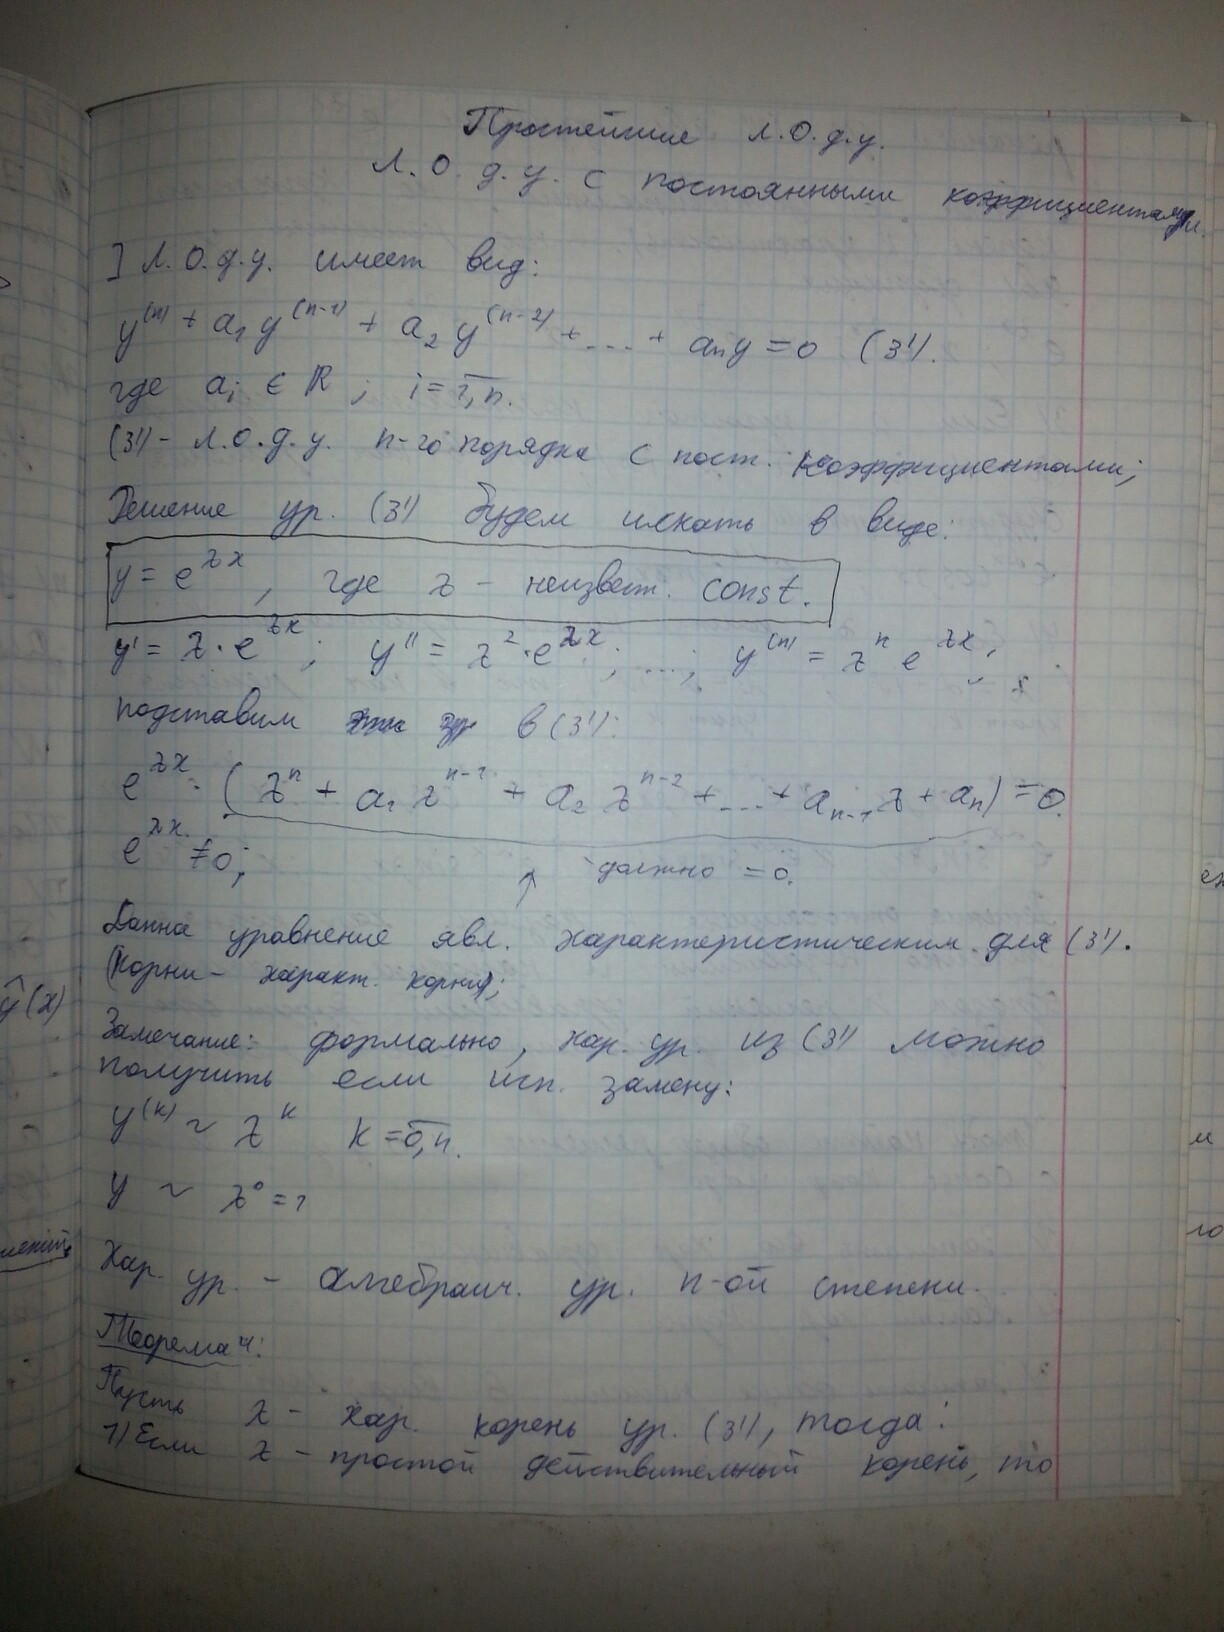 Простейшие Л.О.д.у.
Л.О.д.у. с постоянными коэффициентами.
] Л.О.д.у. имеет вид:
y⁽ⁿ⁾ + a₁y⁽ⁿ⁻¹⁾ + a₂y⁽ⁿ⁻²⁾ + ... + aₙy = 0 (3').
где aᵢ ∈ ℝ; i = 1,n.
(3') - Л.О.д.у. n-го порядка с пост. коэффициентами;
Решение ур. (3') будем искать в виде:
y = e^λx, где λ - неизвест. const.
y' = λ·e^λx; y'' = λ²·e^λx; ...; y⁽ⁿ⁾ = λⁿ e^λx;
подставим эти ур в (3'):
e^λx · (λⁿ + a₁λⁿ⁻¹ + a₂λⁿ⁻² + ... + aₙ₋₁λ + aₙ) = 0.
e^λx ≠ 0; ↑ должно = 0.
Данна уравнение явл. характеристическим для (3').
(корни - характ. корни);
Замечание: формально, хар. ур. из (3') можно
получить если исп. замену:
y⁽ᵏ⁾ ~ λᵏ k = 0,n.
y ~ λ⁰ = 1
Хар. ур. - алгебраич. ур. n-ой степени.
Теорема 4:
Пусть λ - хар. корень ур. (3'), тогда:
1) Если λ - простой действительный корень, то
ỹ(x)